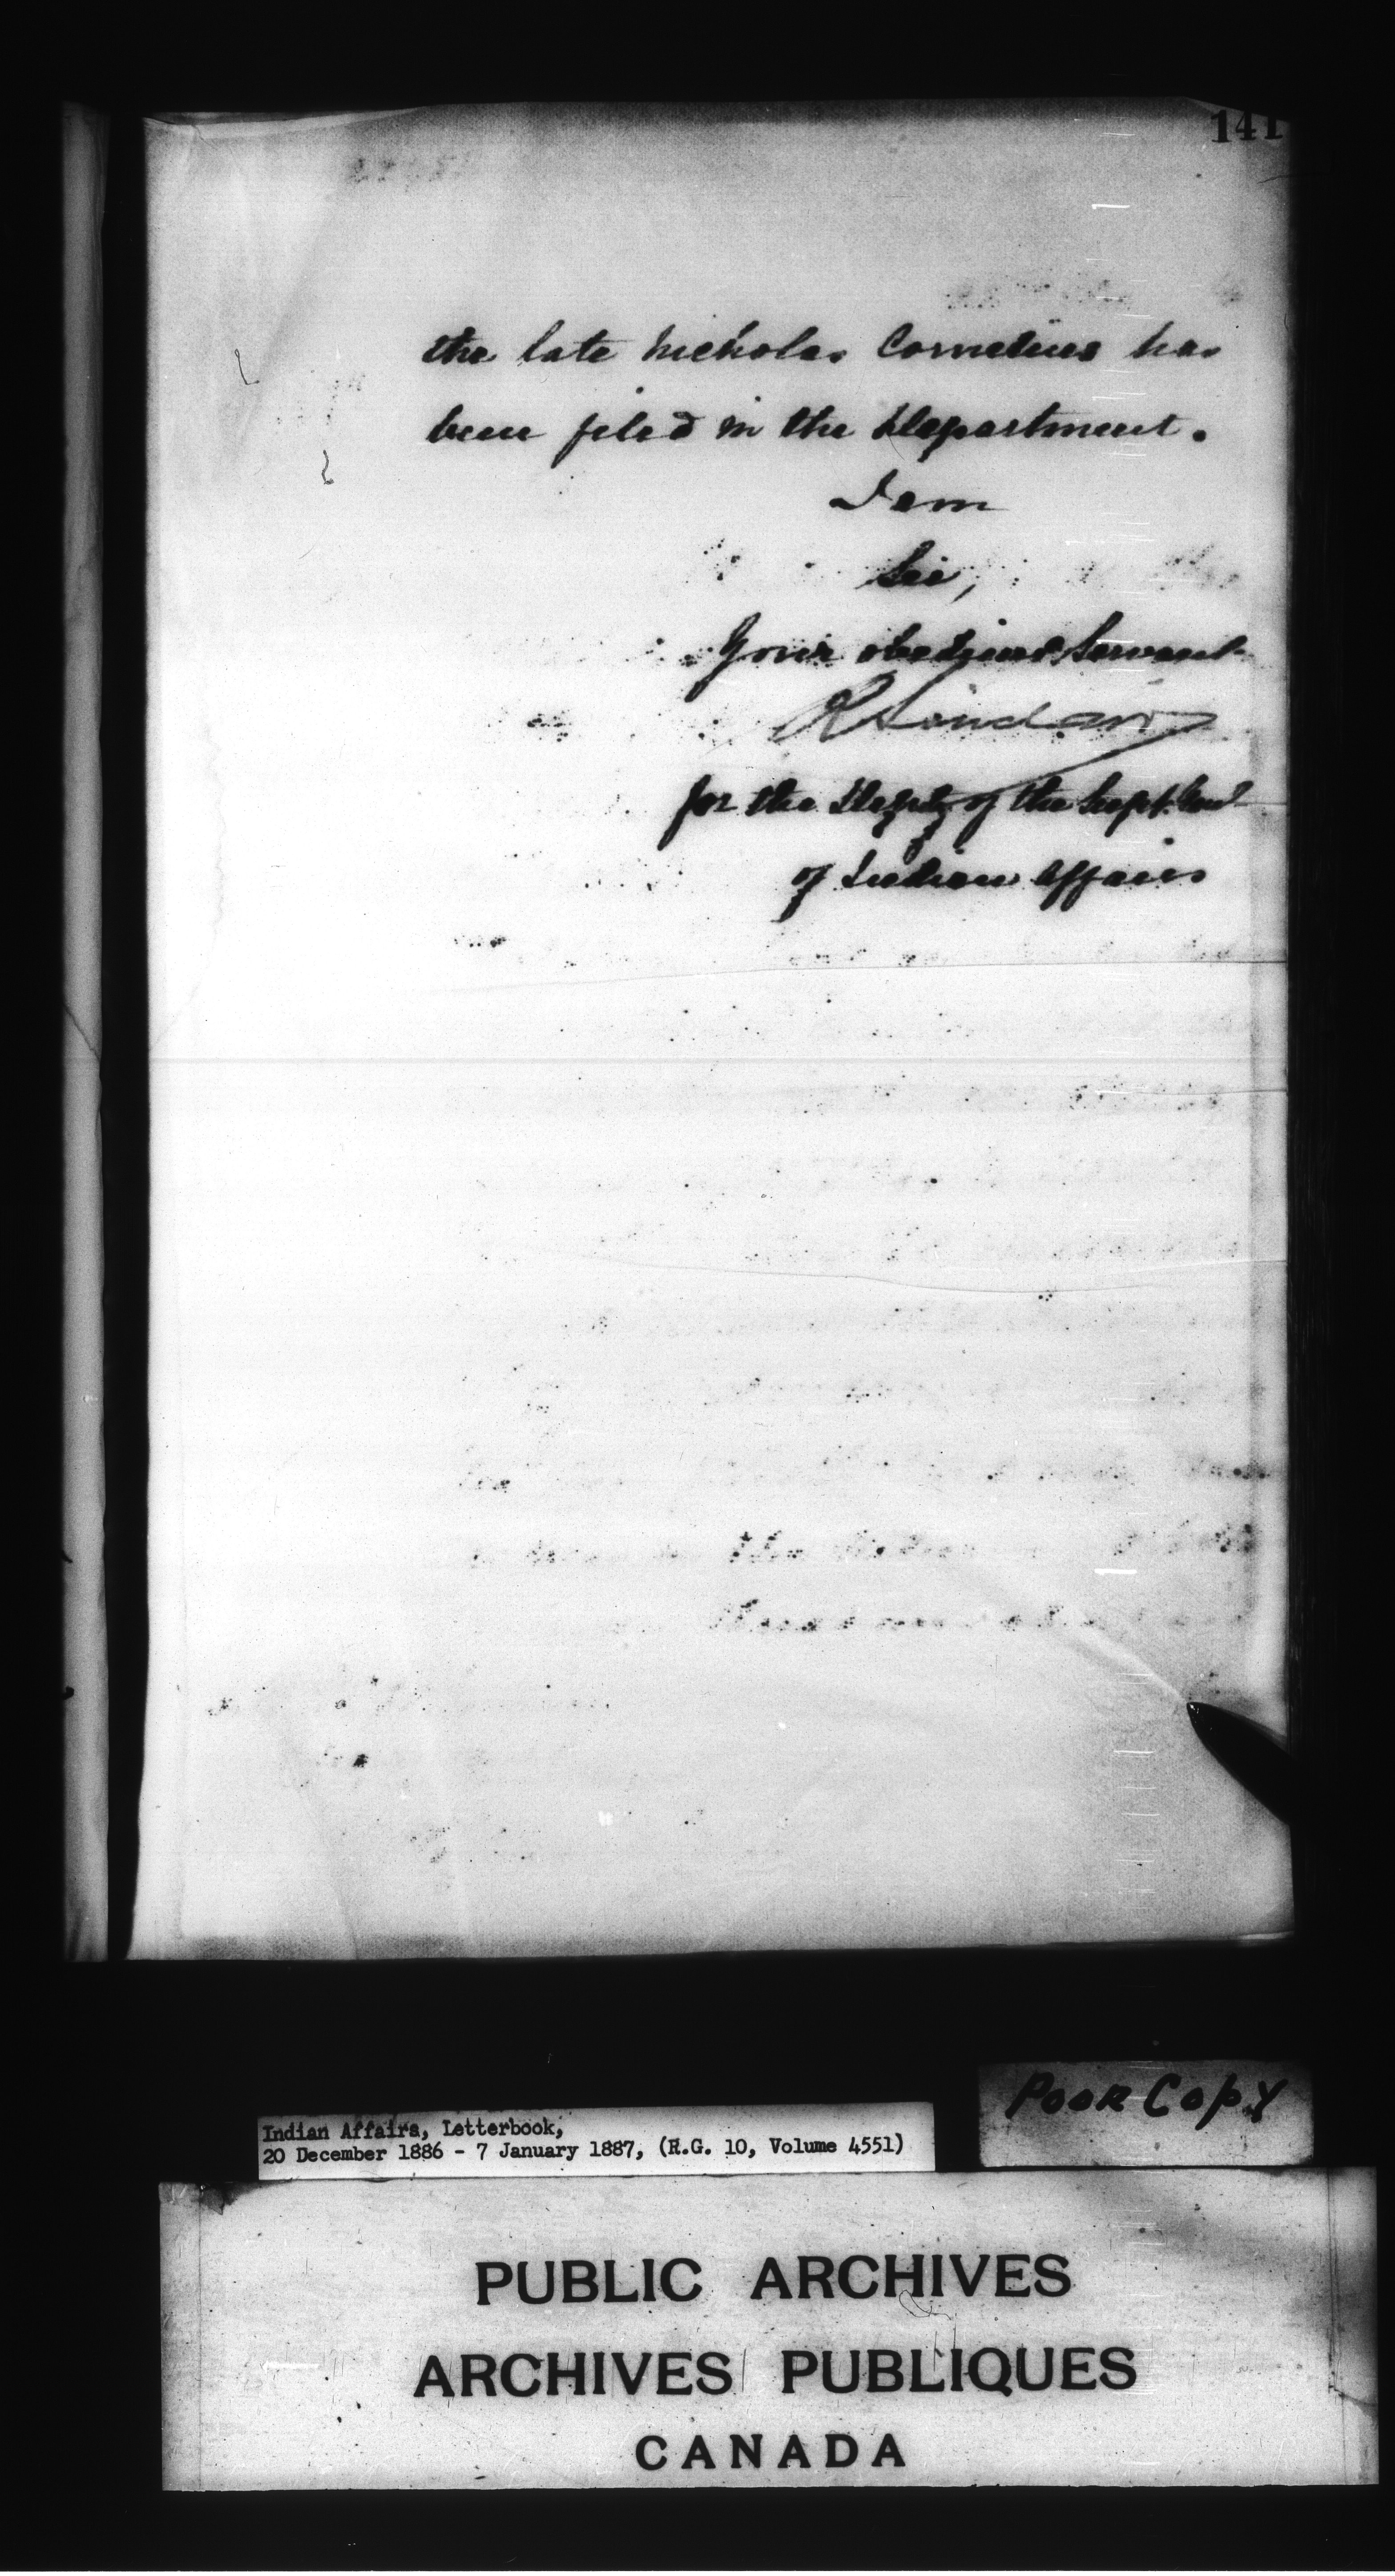 141
the late Nicholas Cornelius has
been filed in the Department.
I am
Sir,
Your obedient Servant
R Sinclair
for the Deputy of the Supt. Genl
of Indian Affairs
Poor Copy
Indian Affairs, Letterbook,
20 December 1886 - 7 January 1887, (R.G. 10, Volume 4551)
PUBLIC ARCHIVES
ARCHIVES PUBLIQUES
CANADA